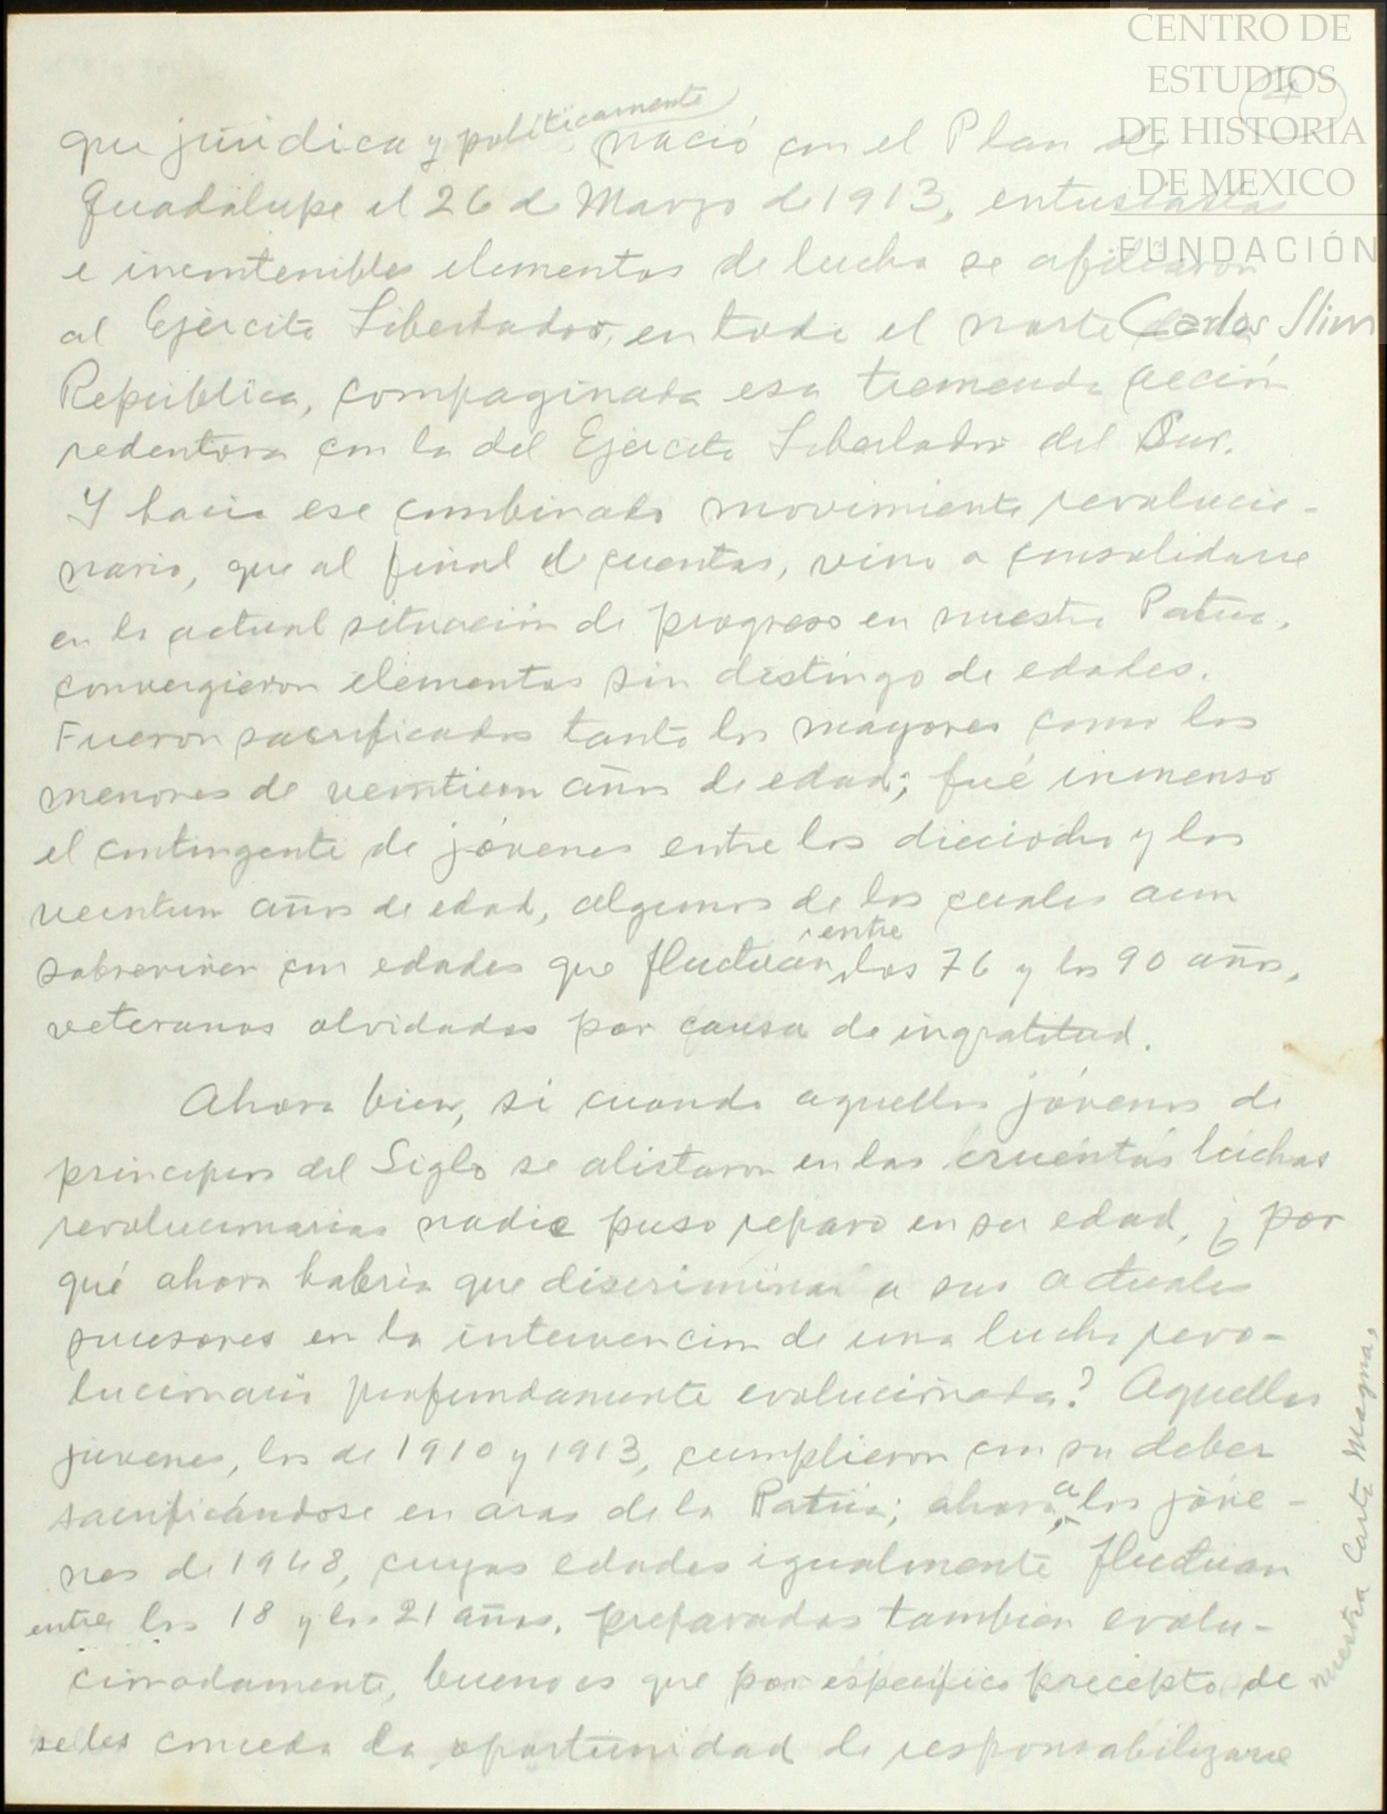 CENTRO DE
ESTUDIOS
DE HISTORIA
DE MEXICO
FUNDACIÓN
Carlos Slim
4
que jurídica y políticamente nació con el Plan de
Guadalupe el 26 de Marzo de 1913, entusiastas
e incontenibles elementos de lucha se afiliaron
al Ejército Libertador, en todo el norte de la
República, compaginada esa tremenda acción
redentora con la del Ejército Libertador del Sur.
Y hacia ese combinado movimiento revolucio-
nario, que al final de cuentas, vino a consolidarse
en la actual situación de progreso en nuestra Patria,
convergieron elementos sin distingo de edades.
Fueron sacrificados tanto los mayores como los
menores de veintiun años de edad; fué inmenso
el contingente de jóvenes entre los dieciocho y los
veintun años de edad, algunos de los cuales aun
sobreviven con edades que fluctúan entre los 76 y los 90 años,
veteranos olvidados por causa de ingratitud.
Ahora bien, si cuando aquellos jóvenes de
principios del Siglo se alistaron en las cruentas luchas
revolucionarias nadie puso reparo en su edad, ¿por
qué ahora habría que discriminar a sus actuales
sucesores en la intervención de una lucha revo-
lucionaria profundamente evolucionada? Aquellos
jóvenes, los de 1910 y 1913, cumplieron con su deber
sacrificándose en aras de la Patria; ahora, a los jóve-
nes de 1968, cuyas edades igualmente fluctúan
entre los 18 y los 21 años, preparados también evolu-
cionadamente, bueno es que por específico precepto de
nuestra Carta Magna,
se les conceda la oportunidad de responsabilizarse